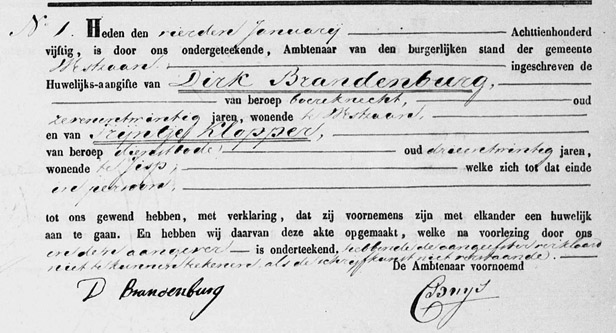 No. 1. Heden den vierden Januarij Achttienhonderd
vijftig, is door ons ondergeteekende, Ambtenaar van den burgerlijken stand der gemeente
Westzaan ingeschreven de
Huwelijks-aangifte van Dirk Brandenburg,
van beroep boereknecht, oud
zevenentwintig jaren, wonende te Westzaan,
en van Trijntje Klopper,
van beroep dienstbode, oud drieentwintig jaren,
wonende te Jisp, welke zich tot dat einde
in persoon,
tot ons gewend hebben, met verklaring, dat zij voornemens zijn met elkander een huwelijk
aan te gaan. En hebben wij daarvan deze akte opgemaakt, welke na voorlezing door ons
en den aangever is onderteekend, hebbende de aangeefster verklaard
niet te kunnen teekenen, als de schrijfkunst niet verstaande.
De Ambtenaar voornoemd
D Brandenburg